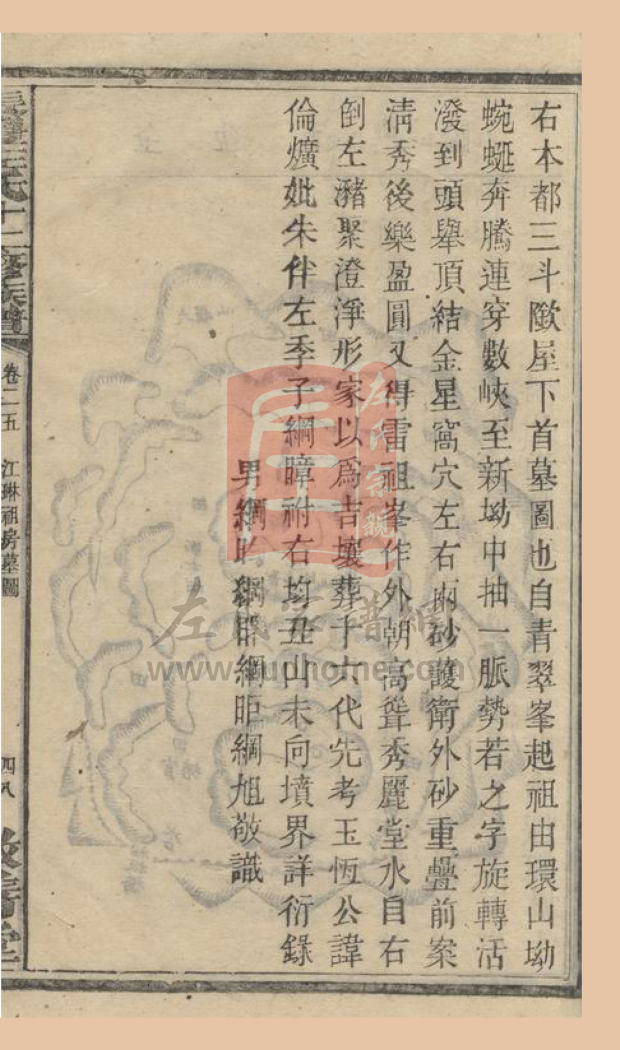 右本都三斗隞屋下首墓圖也自青翠峯起祖由環山坳
蜿蜒奔騰連穿數峽至新坳中抽一脈勢若之字旋轉活
潑到頭舉頂結金星窩穴左右兩砂護衛外砂重疊前案
清秀後樂盈圓又得雷祖峯作外朝高聳秀麗堂水自右
倒左瀦聚澄淨形家以爲吉壤葬十六代先考玉恆公諱
倫爌妣朱伴左季子綱暲祔右均丑山未向墳界詳衍錄
男綱昤綱辟綱昛綱旭敬識
氏十二修族譜
卷二五
江琳祖房墓圖
四八
左氏宗親
左氏家譜網